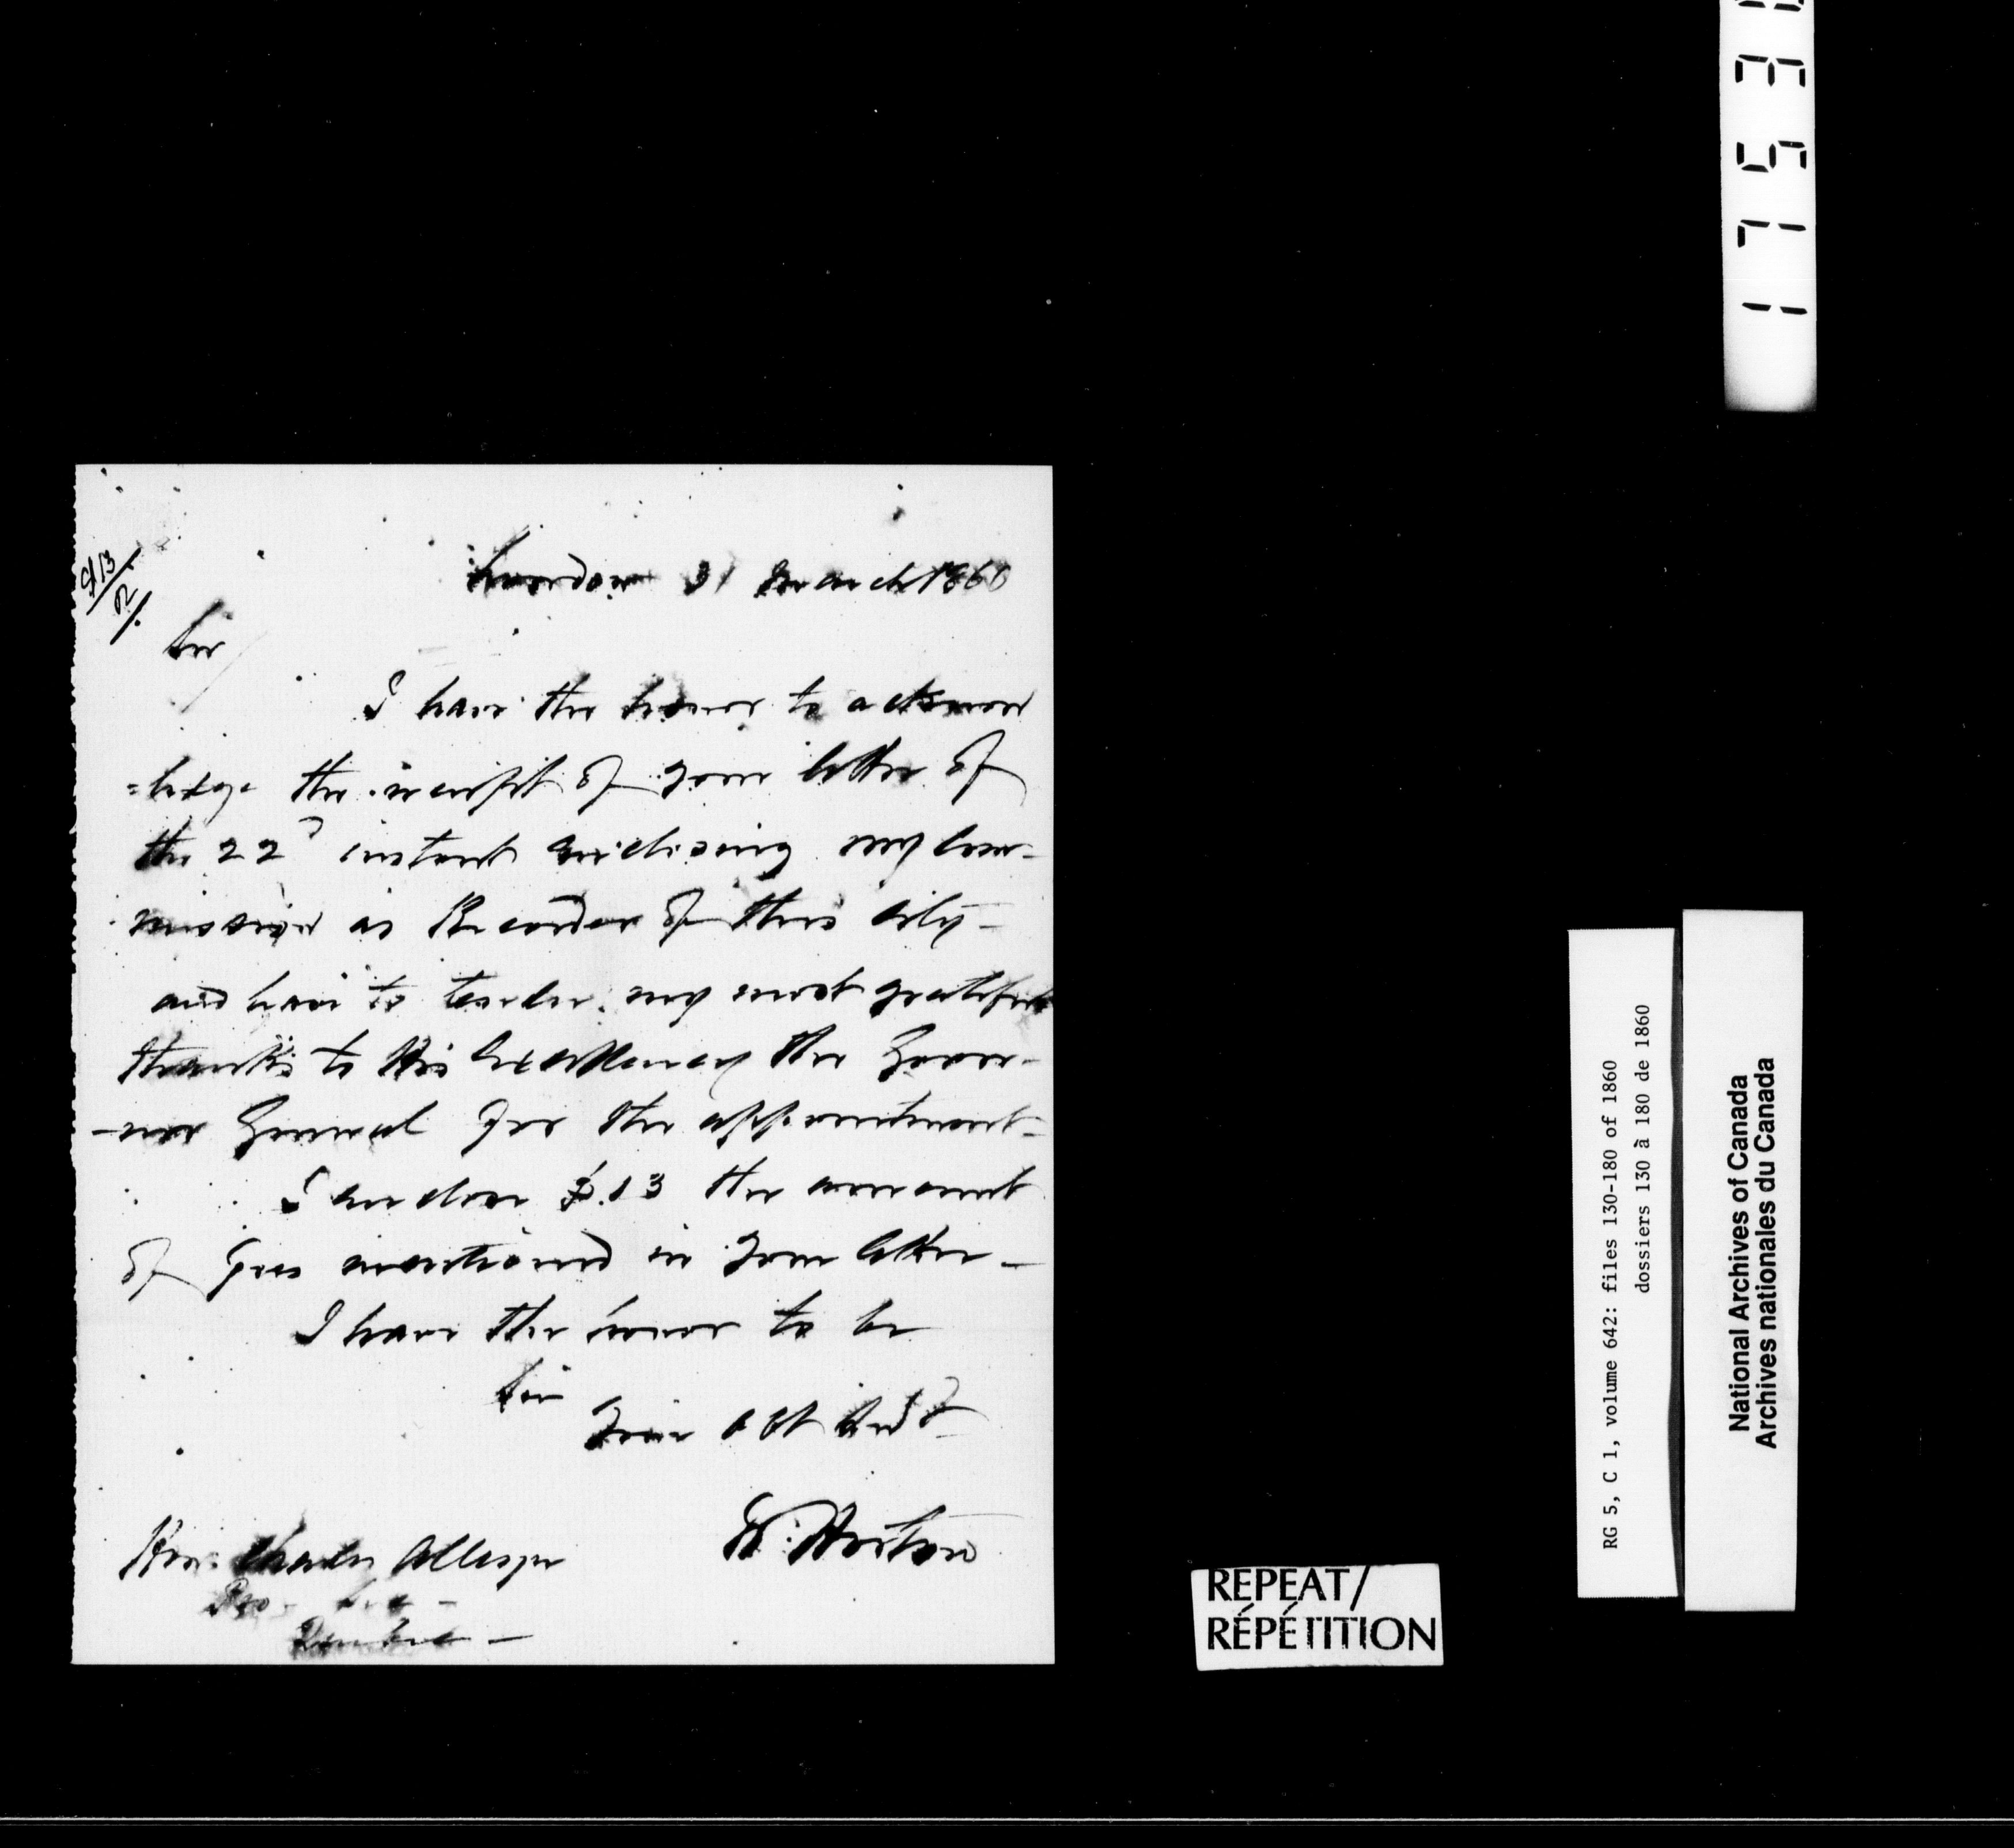 London 31 March 1860
Sir
I have the honor to acknow
=ledge the receipt of your letter of
the 22d instant enclosing my com-
mission as Recorder of this city-
and have to tender my most grateful
thanks to His Excellency the Gover-
-nor General for the appointment-
I enclose $.13 the amount
of fees mentioned in your letter-
I have the honor to be
Sir
Your obt Servt
W. Horton
Hon: Charles Alleyn
Pro- Sec-
Quebec-
REPEAT/
RÉPÉTITION
RG 5, C 1, volume 642: files 130-180 of 1860
dossiers 130 à 180 de 1860
National Archives of Canada
Archives nationales du Canada